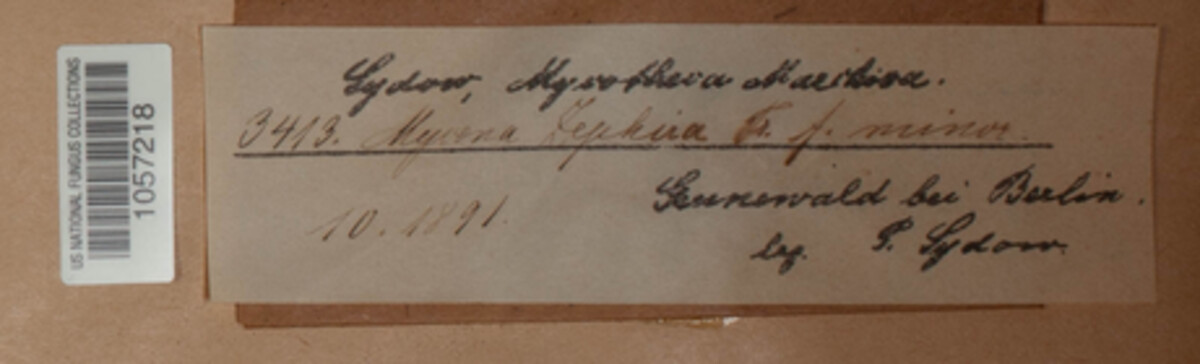 US NATIONAL FUNGUS COLLECTIONS
1057218
Sydow, Mycotheca Marchica.
3413. Mycena Zephira Fr. f. minor.
Grunewald bei Berlin.
10. 1891.
leg. P. Sydow.